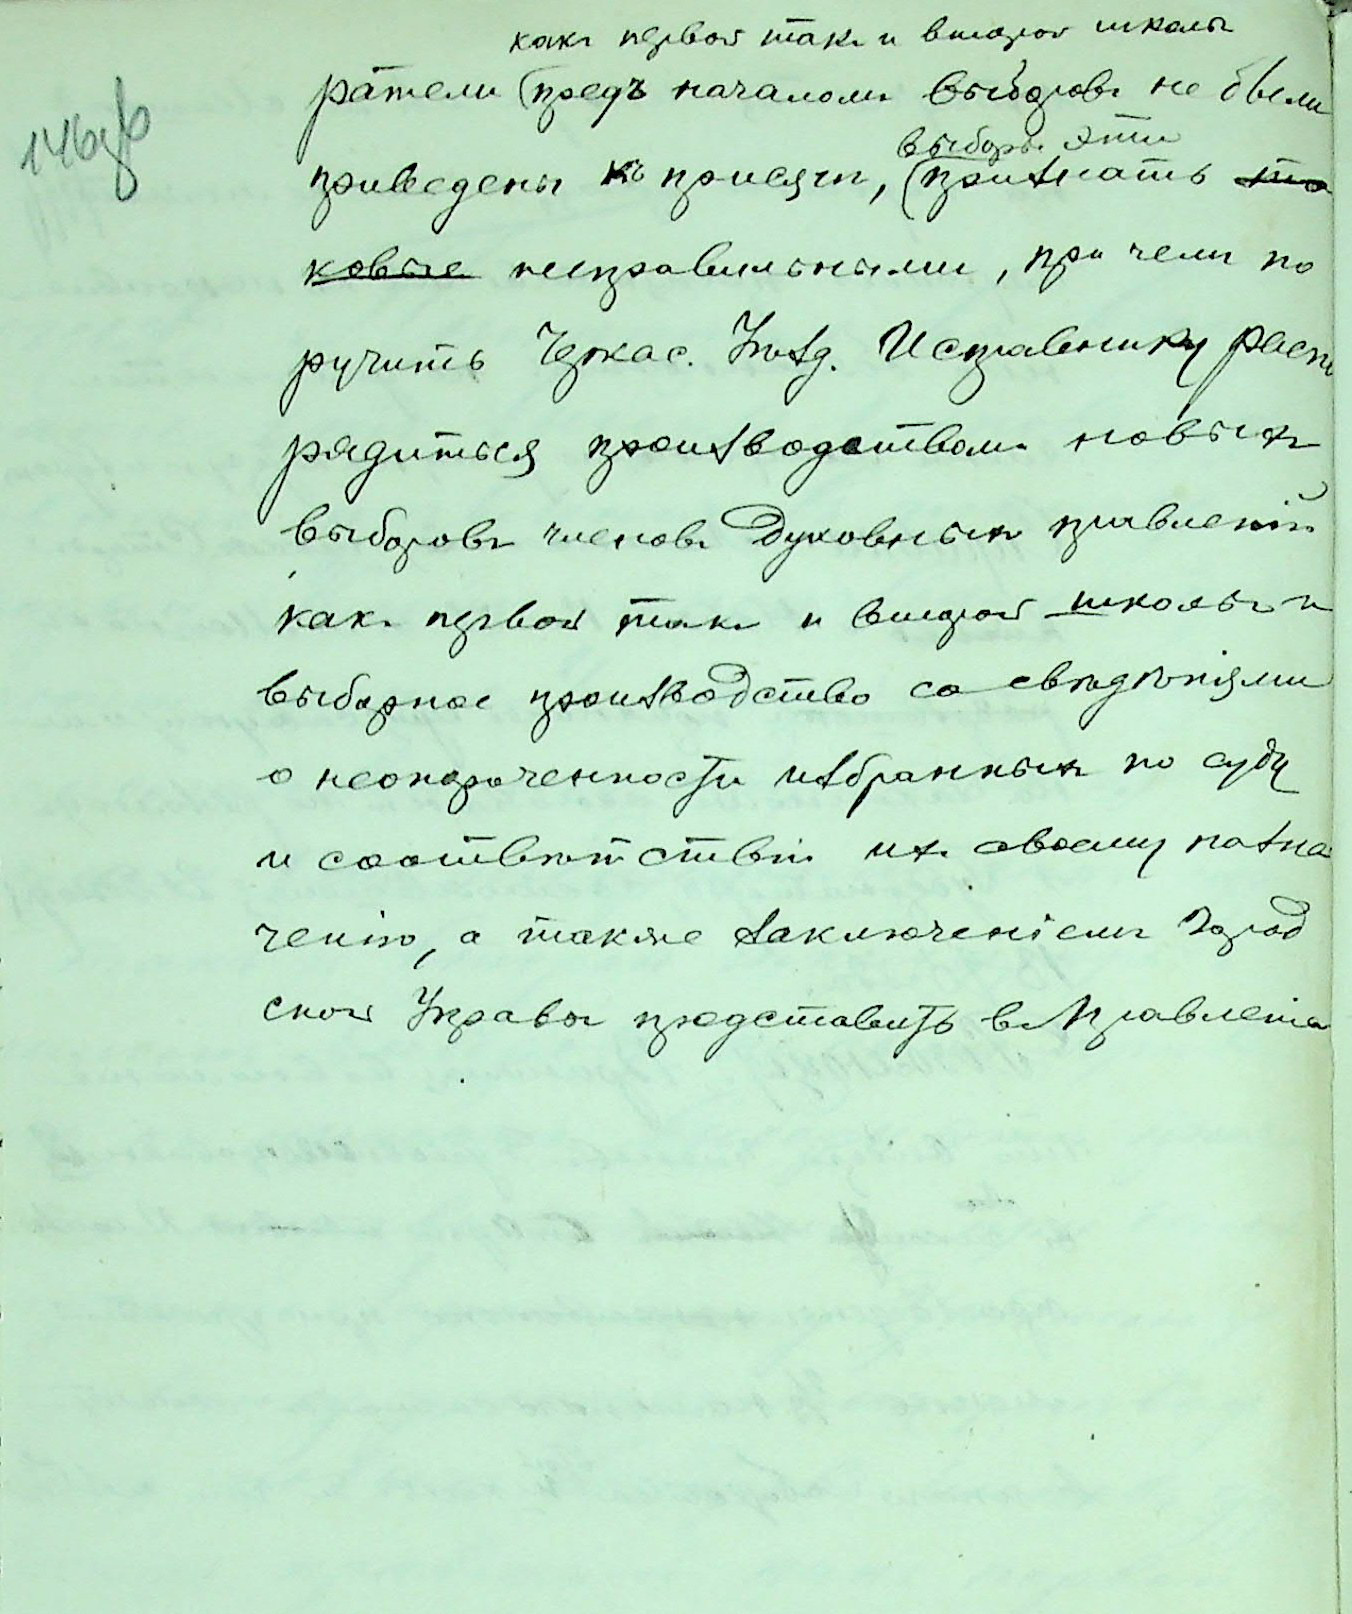 какъ первой такъ и второй школы
146об
ратели (предъ началомъ выборовъ не были
выборы эти
приведены къ присягѣ, (признать та
ковые неправильными, при чемъ по
ручить Черкас. Уѣзд. Исправнику распо
рядиться производствомъ новыхъ
выборовъ членовъ Духовныхъ правленій
какъ первой такъ и второй школы и
выборное производство со свѣдѣніями
о неопороченности избранныхъ по суду
и соотвѣтствіи ихъ своему назна
ченію, а также заключеніемъ Город
ской Управы представить въ Правленіе